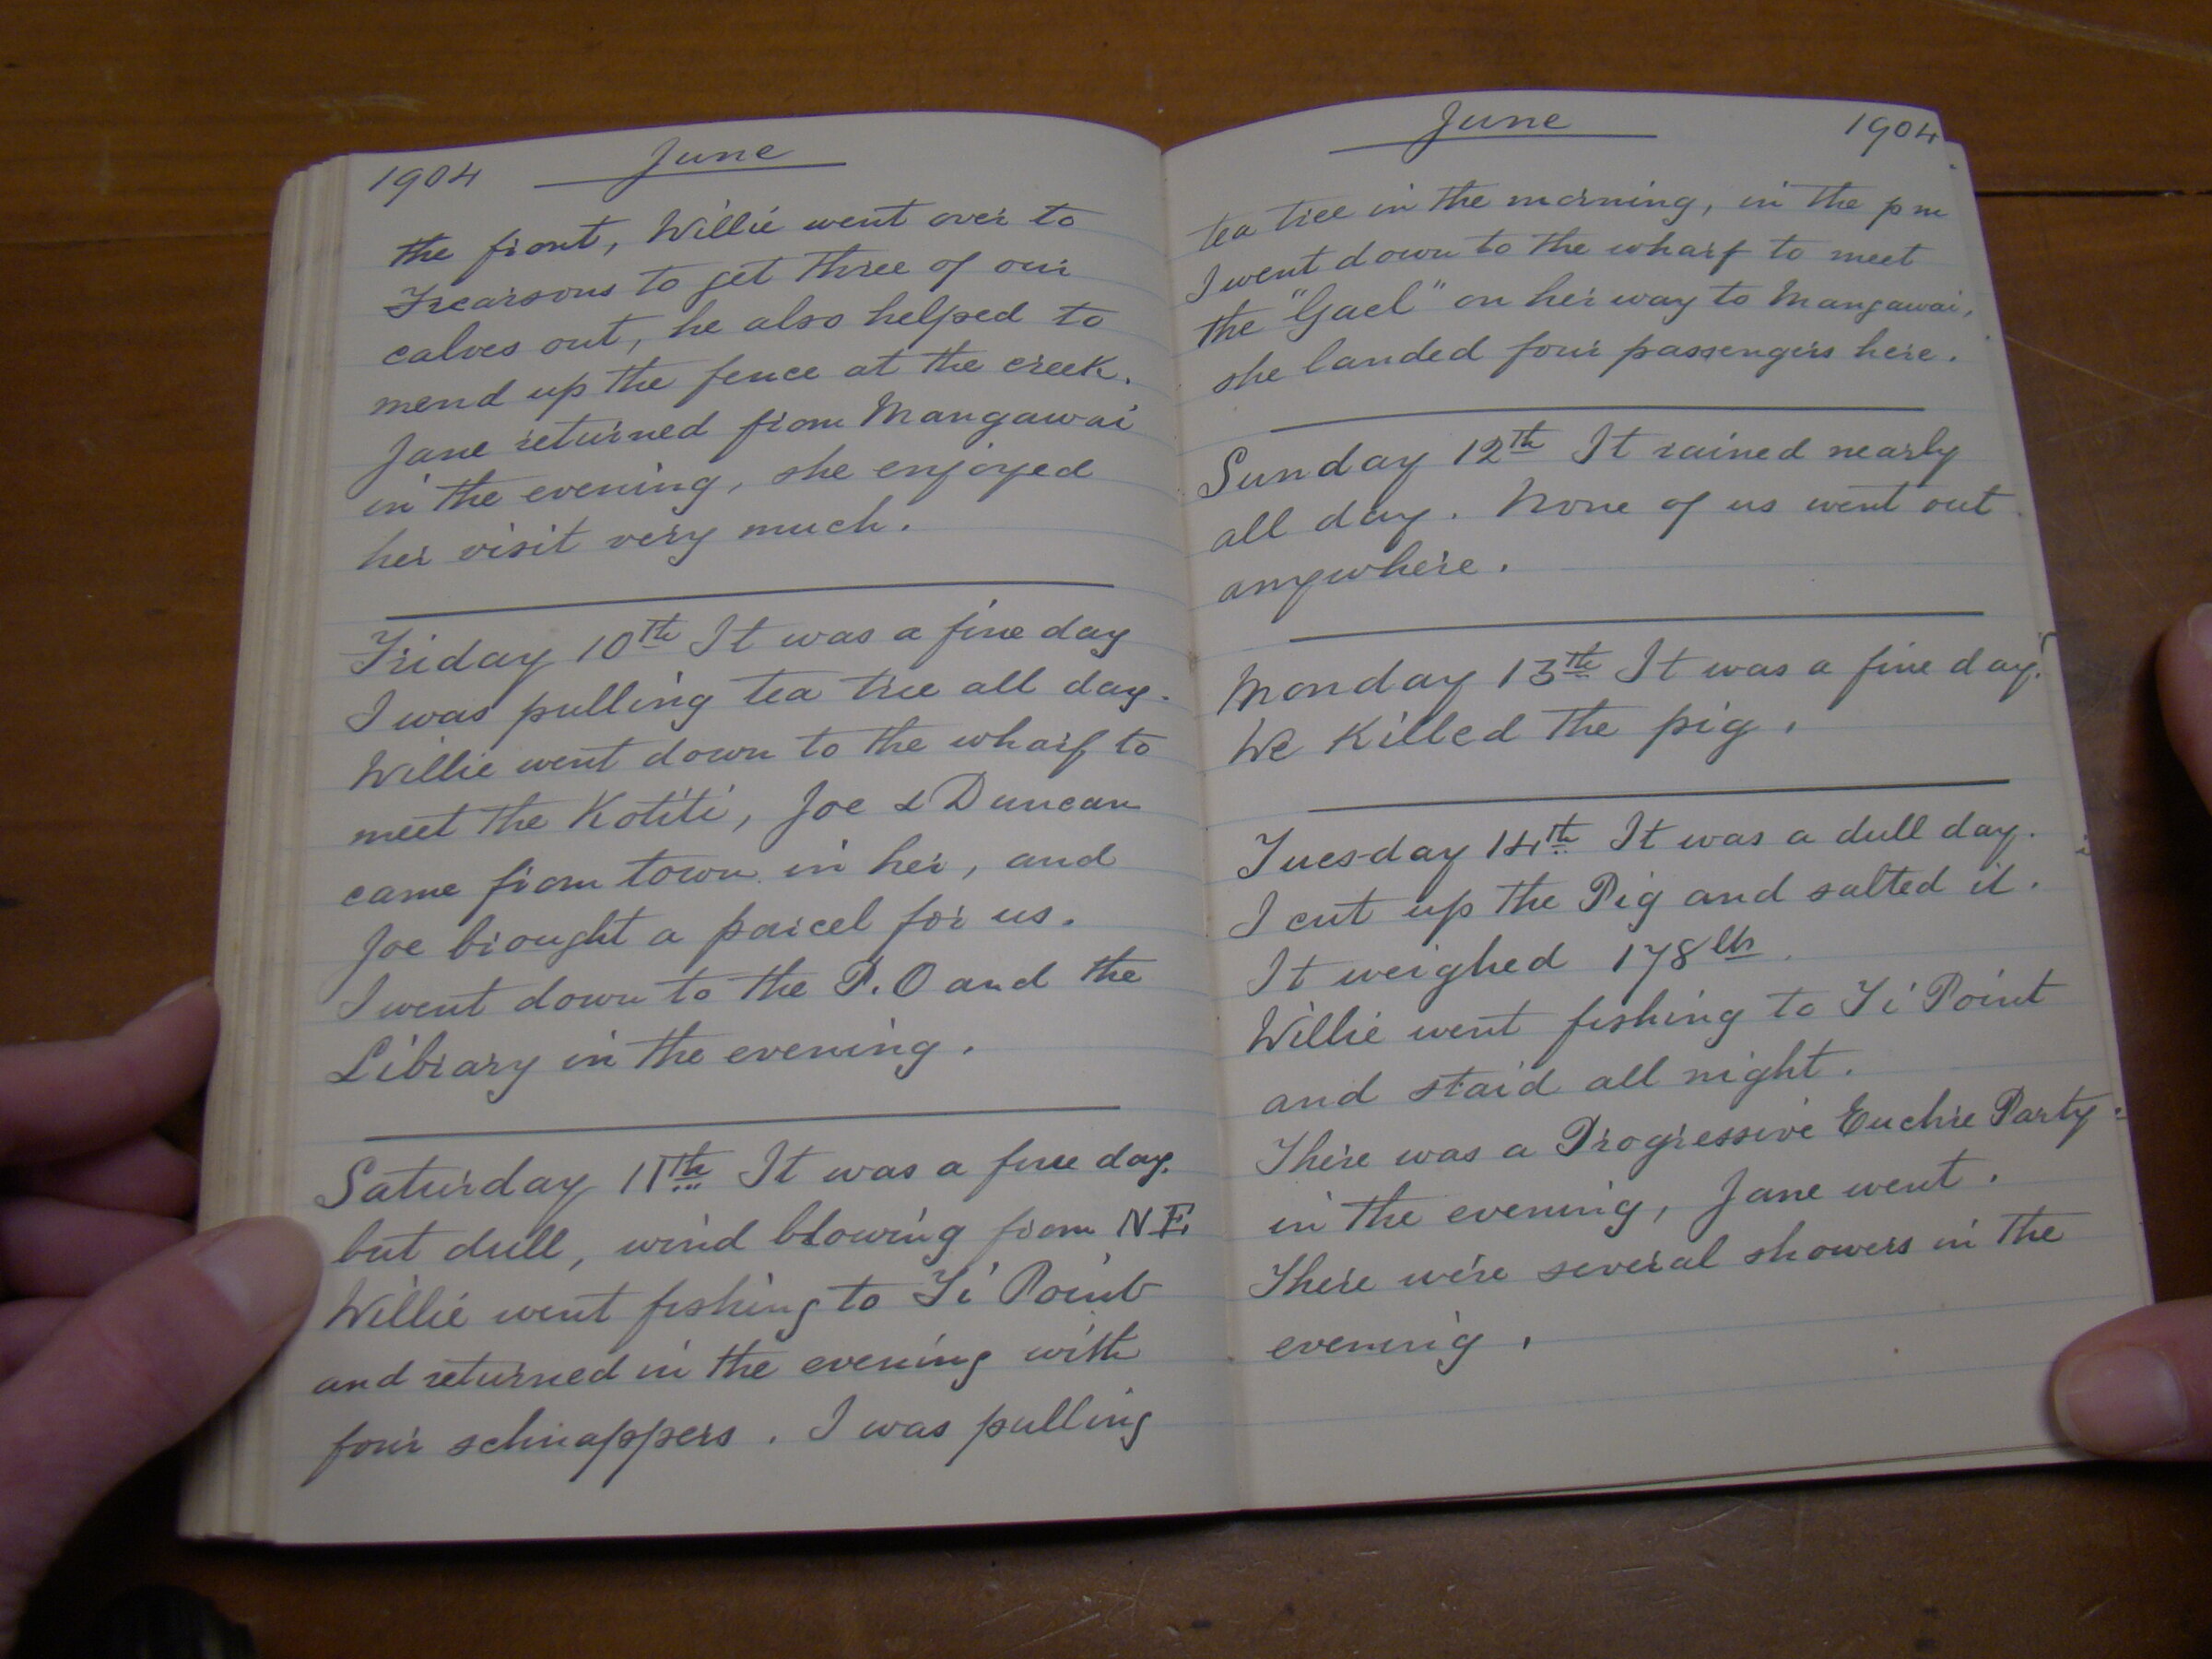 1904 June
the front, Willie went over to
Frearsons to get three of our
calves out, he also helped to
mend up the fence at the creek.
Jane returned from Mangawai
in the evening, she enjoyed
her visit very much.
Friday 10th It was a fine day
I was pulling tea tree all day.
Willie went down to the wharf to
meet the Kotiti, Joe & Duncan
came from town in her, and
Joe brought a parcel for us.
I went down to the P.O and the
Library in the evening.
Saturday 11th It was a fine day.
but dull, wind blowing from N.E.
Willie went fishing to Ti Point
and returned in the evening with
four schnappers. I was pulling
June 1904
tea tree in the morning, in the pm
I went down to the wharf to meet
the "Gael" on her way to Mangawai,
she landed four passengers here.
Sunday 12th It rained nearly
all day. None of us went out
anywhere.
Monday 13th It was a fine day.
We Killed the pig.
Tuesday 14th It was a dull day.
I cut up the Pig and salted it.
It weighed 178 lb.
Willie went fishing to Ti Point
and staid all night.
There was a Progressive Euchre Party
in the evening, Jane went.
There were several showers in the
evening.